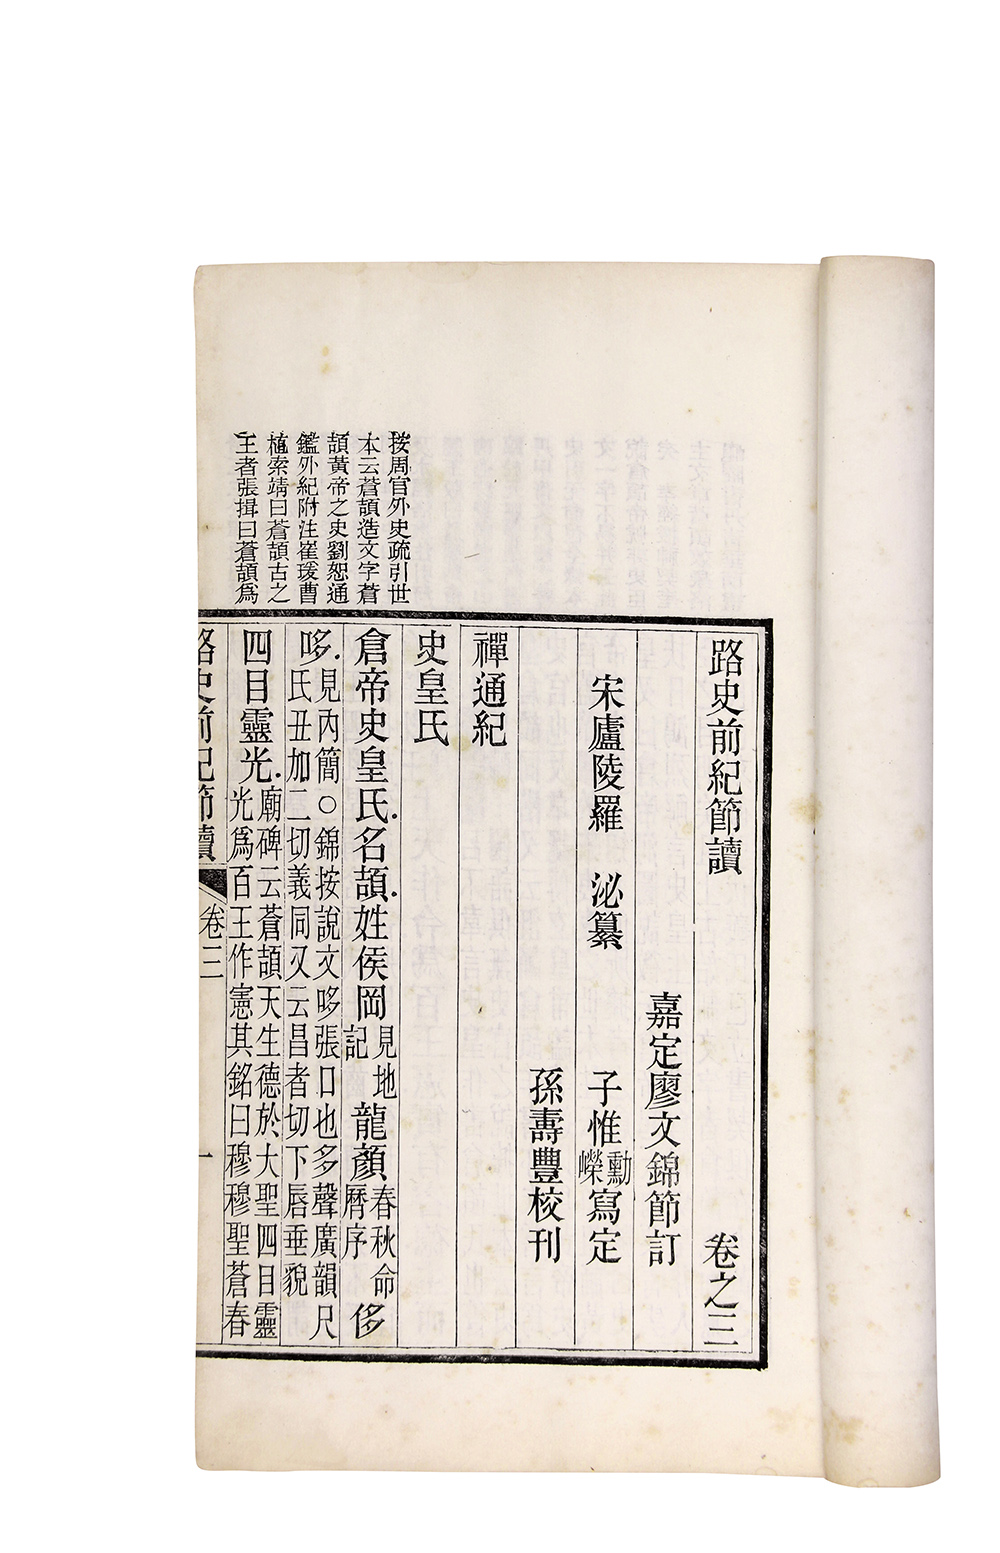 按周官外史疏引世
本云蒼頡造文字蒼
頡黃帝之史劉恕通
鑑外紀附注崔瑗曹
植索靖曰蒼頡古之
王者張揖曰蒼頡爲
路史前紀節讀 卷之三
嘉定廖文錦節訂
宋廬陵羅 泌纂 子惟勳嶸寫定
孫壽豐校刊
禪通紀
史皇氏
倉帝史皇氏名頡姓侯岡見地記龍顏春秋命曆序侈
哆見內簡○錦按說文哆張口也多聲廣韻尺
氏丑加二切義同又云昌者切下唇垂貌
四目靈光廟碑云蒼頡天生德於大聖四目靈
光爲百王作憲其銘曰穆穆聖蒼春
路史前紀節讀 卷三 一